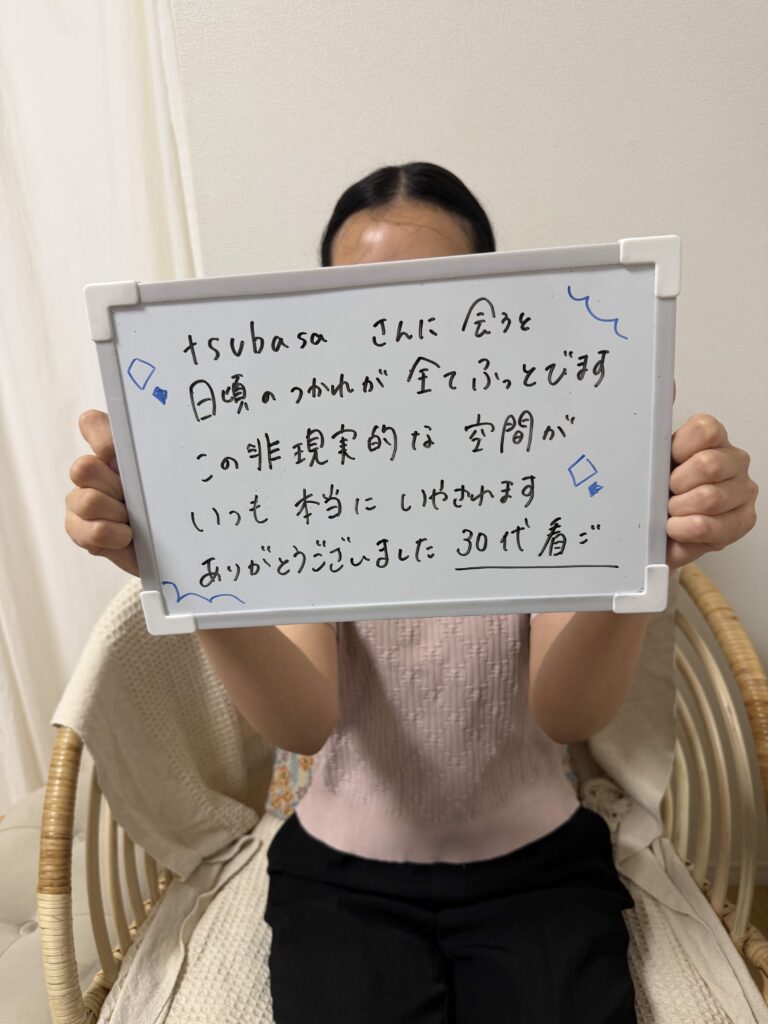 tsubasa さんに 会うと
日頃のつかれが 全てふっとびます
この非現実的な 空間が
いつも 本当に いやされます
ありがとうございました 30代看ご